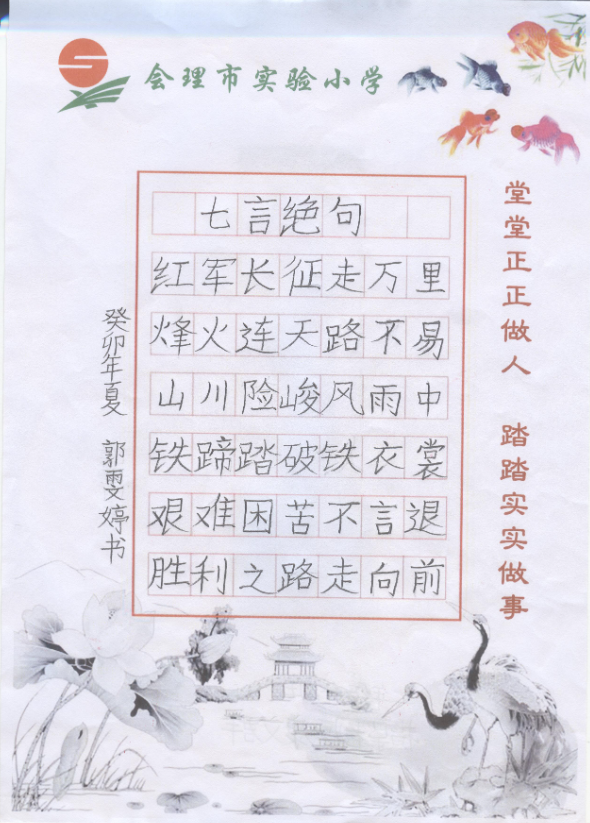 会理市实验小学
七言绝句
红军长征走万里
烽火连天路不易
山川险峻风雨中
铁蹄踏破铁衣裳
艰难困苦不言退
胜利之路走向前
堂堂正正做人 踏踏实实做事
癸卯年夏 郭雯婷书